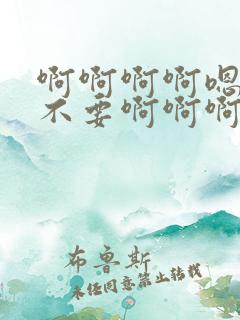 啊啊啊啊嗯
不要啊啊啊
布鲁斯
未经同意禁止转载